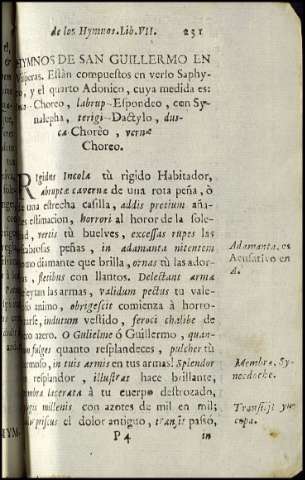 de los Hymnos. Lib. VII. 231
HYMNOS DE SAN GUILLERMO EN
Visperas. Estàn compuestos en verso Saphy-
, y el quarto Adonico, cuya medida es:
Choreo, labrup- Espondeo, con Sy-
nalepha, terigi- Dactylo, dus-
ca- Chorèo, vernæ
Choreo.
Rigidus Incola tù rìgido Habitador,
abruptæ cavernæ de una rota peña, ò
de una estrecha casilla, addis pretium aña-
es estimacion, horrori al horor de la sole-
d, vertis tù buelves, excessas rupes las
cabrosas peñas, in adamanta nitentem
diamante que brilla, ornas tù las ador-
, fletibus con llantos. Delectant arma
leytan las armas, validum pectus tu vale-
animo, obrigescit comienza à horro-
, indutum vestido, feroci chalibe de
azero. O Gulielme ò Guillermo, quan-
fulges quanto resplandeces, pulcher tù
ermoso, in tuis armis en tus armas! Splendor
resplandor, illustrat hace brillante,
membra lacerata à tu cuerpo destrozado,
millenis con azotes de mil en mil;
priscus el dolor antiguo, transijt passò,
P 4 in
Adamanta, es
Acusativo en
A.
Membra, Sy-
necdoche.
Transijt syn-
copa.